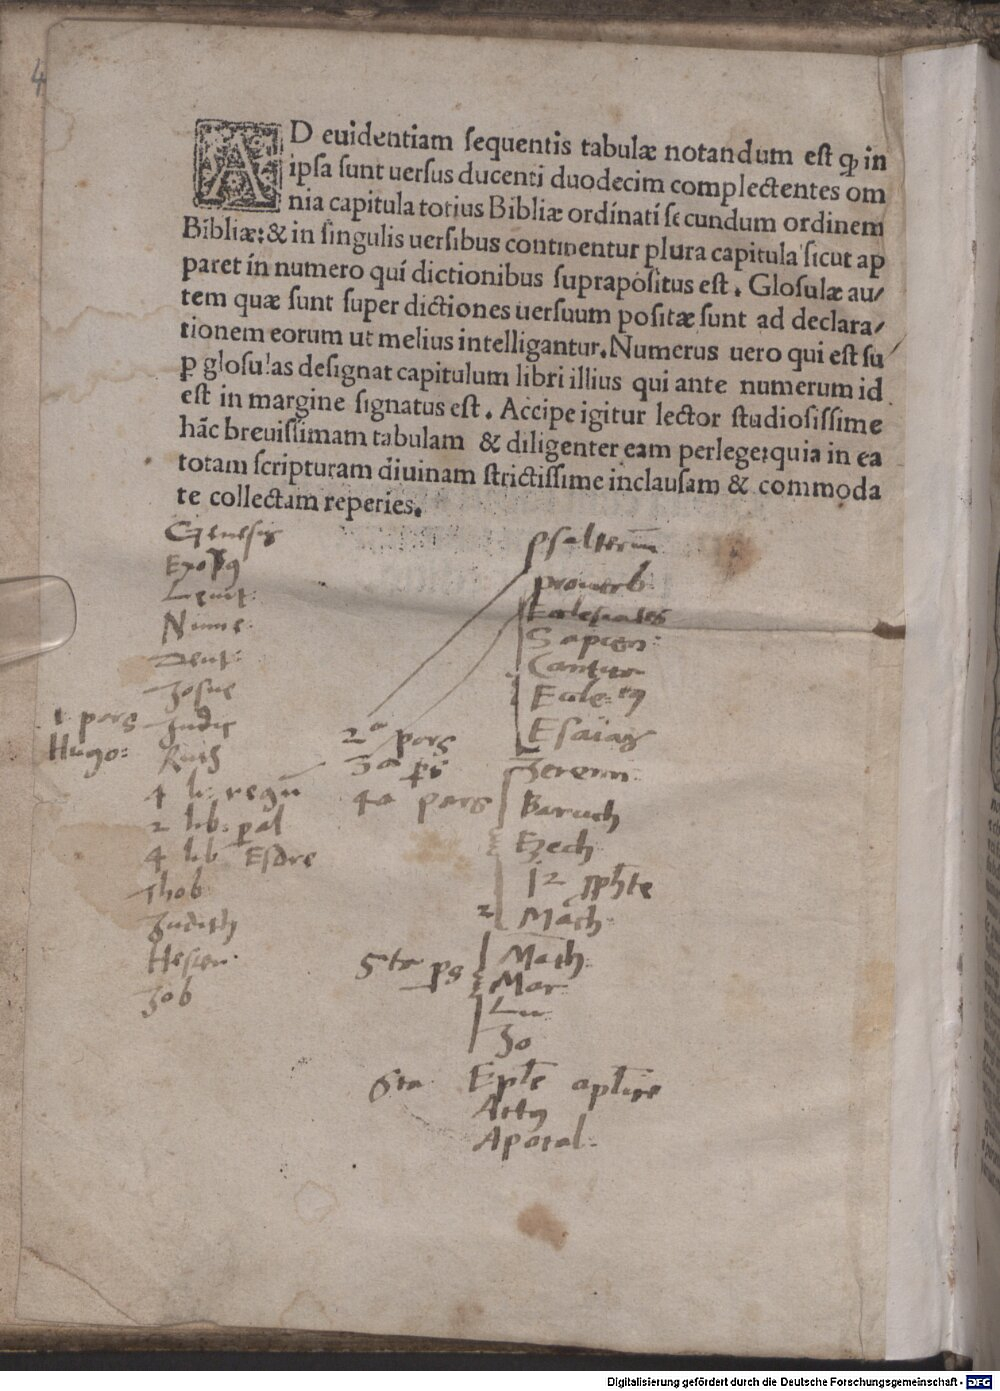 4
AD euidentiam sequentis tabulæ notandum est ꝙ in
ipsa sunt uersus ducenti duodecim complectentes om
nia capitula totius Bibliæ ordinati secundum ordinem
Bibliæ:& in singulis uersibus continentur plura capitula sicut ap
paret in numero qui dictionibus suprapositus est. Glosulæ au/
tem quæ sunt super dictiones uersuum positæ sunt ad declara/
tionem eorum ut melius intelligantur. Numerus uero qui est su/
ꝑ glosulas designat capitulum libri illius qui ante numerum id
est in margine signatus est. Accipe igitur lector studiosissime
hãc breuissimam tabulam & diligenter eam perlege:quia in ea
totam scripturam diuinam strictissime inclausam & commoda
te collectam reperies.
Genesis
Exodꝰ
Leuit:
Nume.
Deut:
Josue
Judic
Ruth
4 li: regũ
2 lib: ꝑal
4 lib Esdre
Thob
Judith
Hester.
Job
1 pars
Hugo:
2ª pars
3ª ꝑs
4ª pars
Psalteriũ
prouerb.
Ecclesiastes
Sapien:
Cantico
Eccle:tꝰ
Esaias
Jeremi:
Baruch
Ezech
12 ꝓphẽte
2 Mach
5ta ps
Math.
Mar
Lu
Jo
6ta Eptẽ aptice
Actꝰ
Apocal.
Digitalisierung gefördert durch die Deutsche Forschungsgemeinschaft - DFG